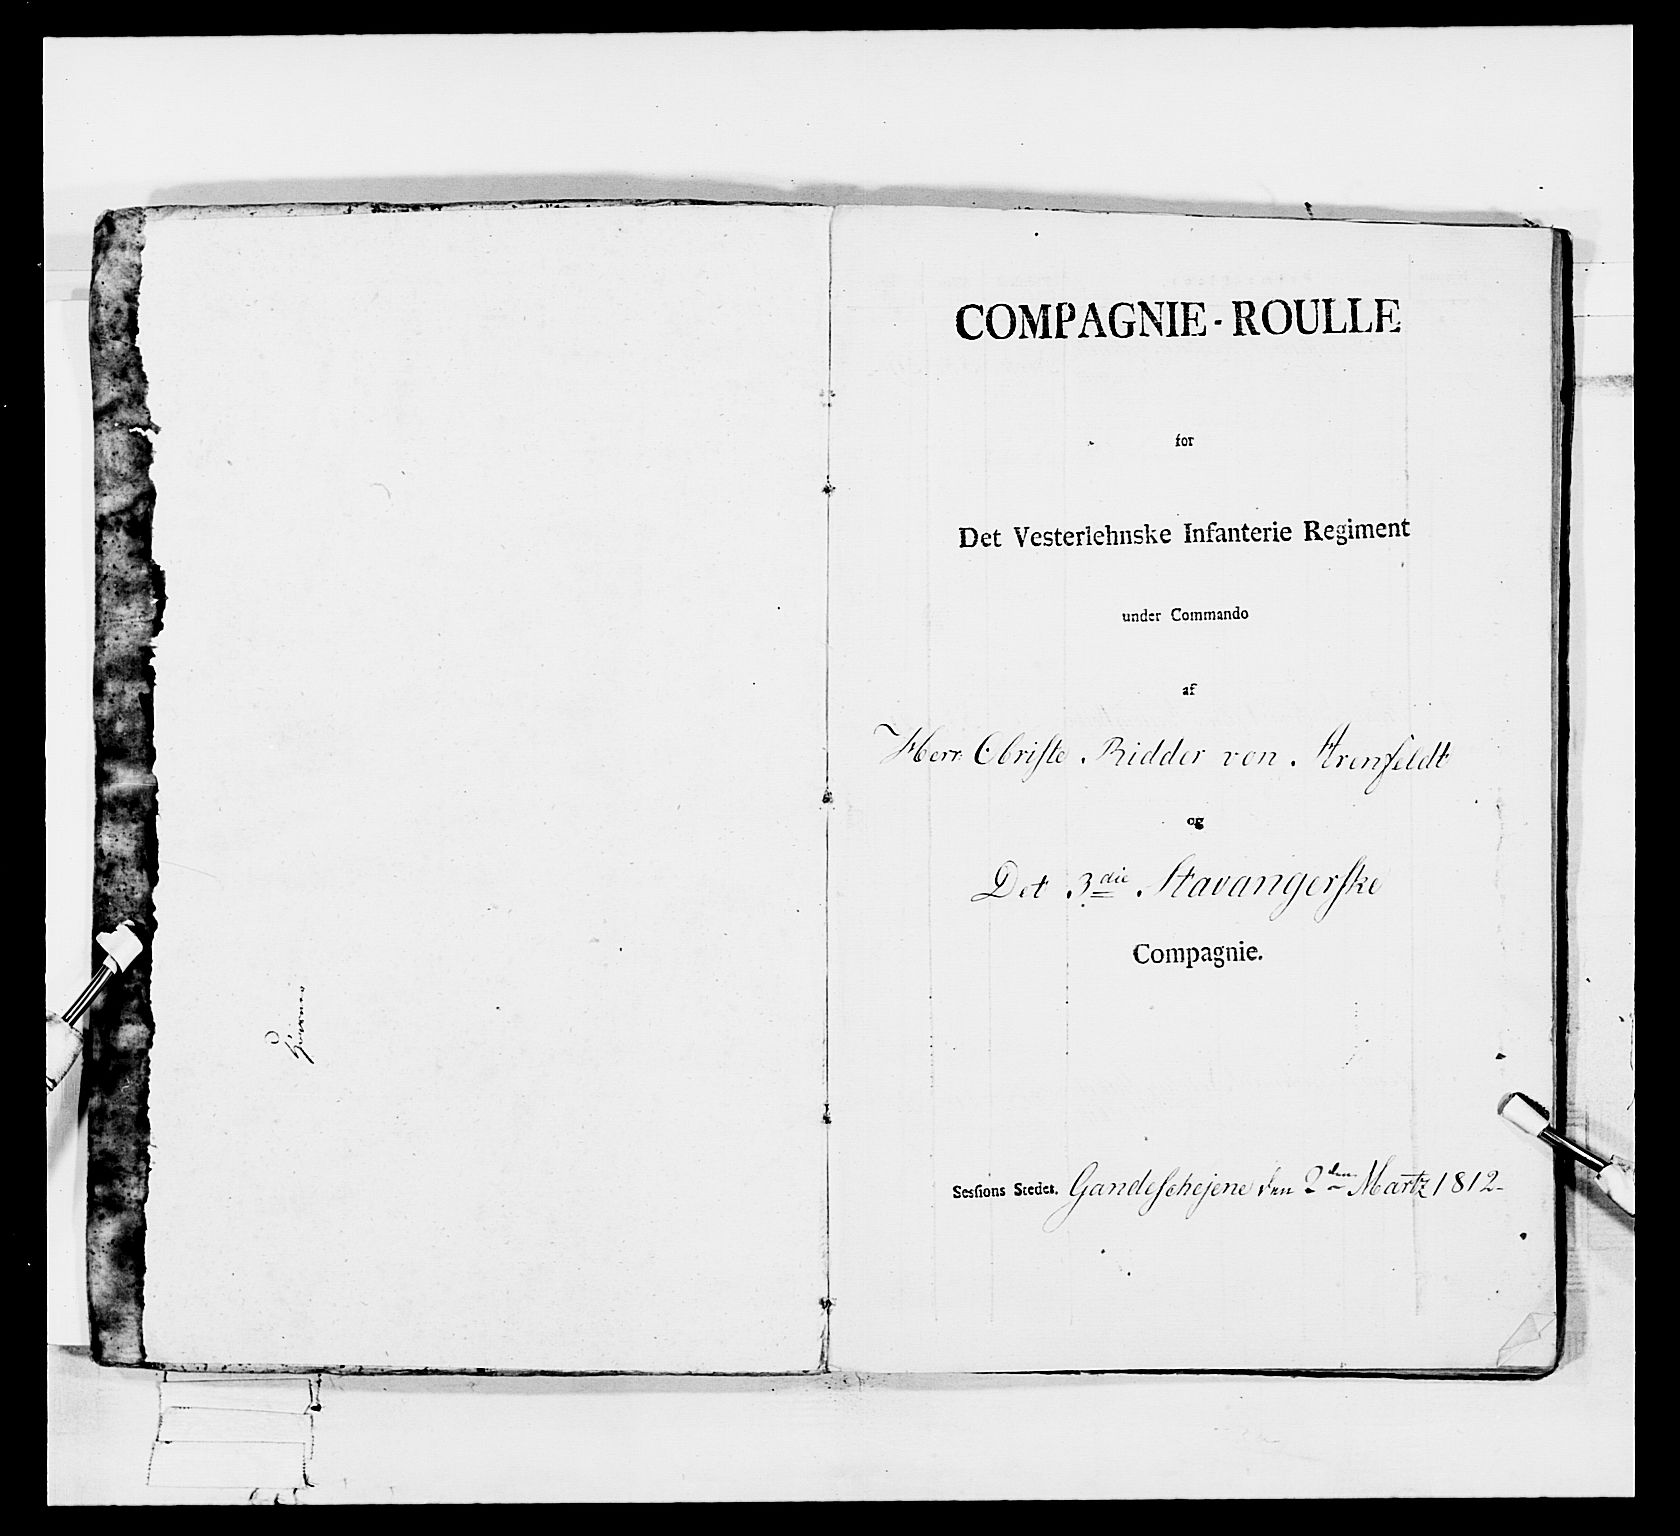 COMPAGNIE-ROULLE
for
Det Vesterlehnske Infanterie Regiment
under Commando
af
Herr Obriste Ridder von Arenfeldt
og
Det 3die Stavangerske
Compagnie.
Sesſions Stedet. Gandeschejene den 2den Martz 1812